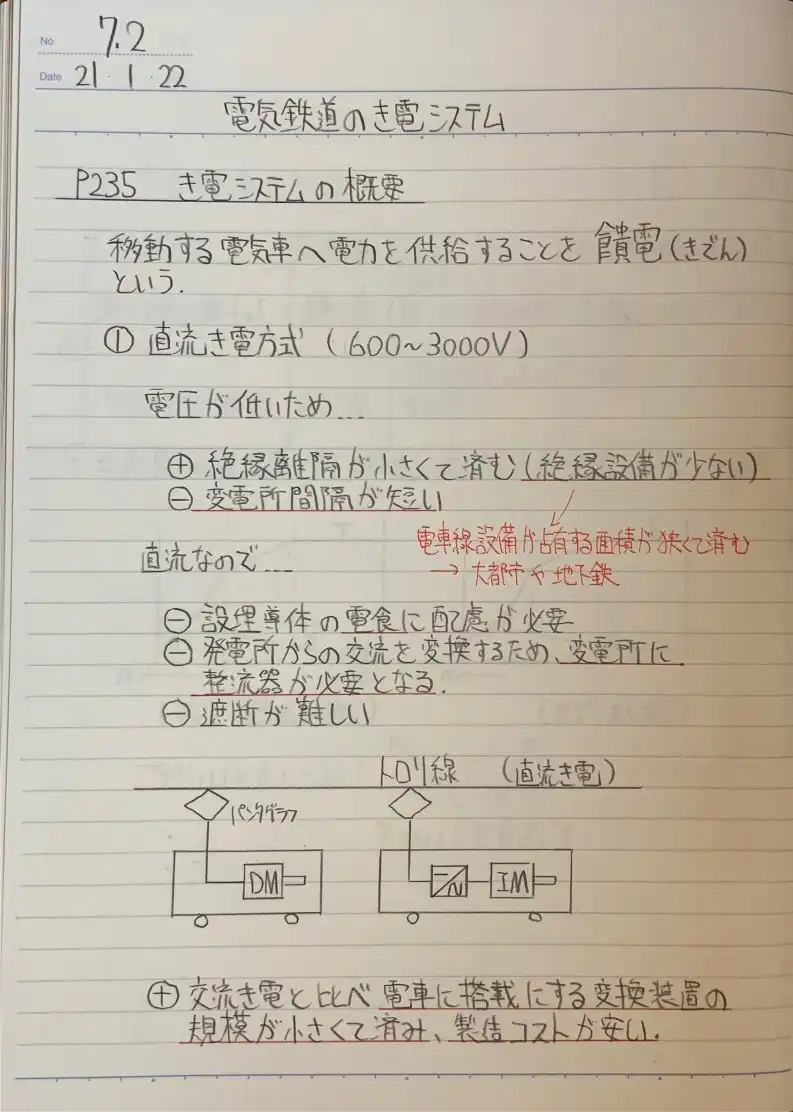 No 7.2
Date 21・1・22
電気鉄道のき電システム
P235 き電システムの概要
移動する電気車へ電力を供給することを 饋電(きでん)
という.
① 直流き電方式 (600~3000V)
電圧が低いため...
⊕ 絶縁離隔が小さくて済む(絶縁設備が少ない)
⊖ 変電所間隔が短い
電車線設備が占有する面積が狭くて済む
→ 大都市や地下鉄
直流なので...
⊖ 設埋導体の電食に配慮が必要
⊖ 発電所からの交流を変換するため、変電所に
整流器が必要となる.
⊖ 遮断が難しい
トロリ線 (直流き電)
パンタグラフ
DM
IM
⊕ 交流き電と比べ電車に搭載にする変換装置の
規模が小さくて済み、製造コストが安い.